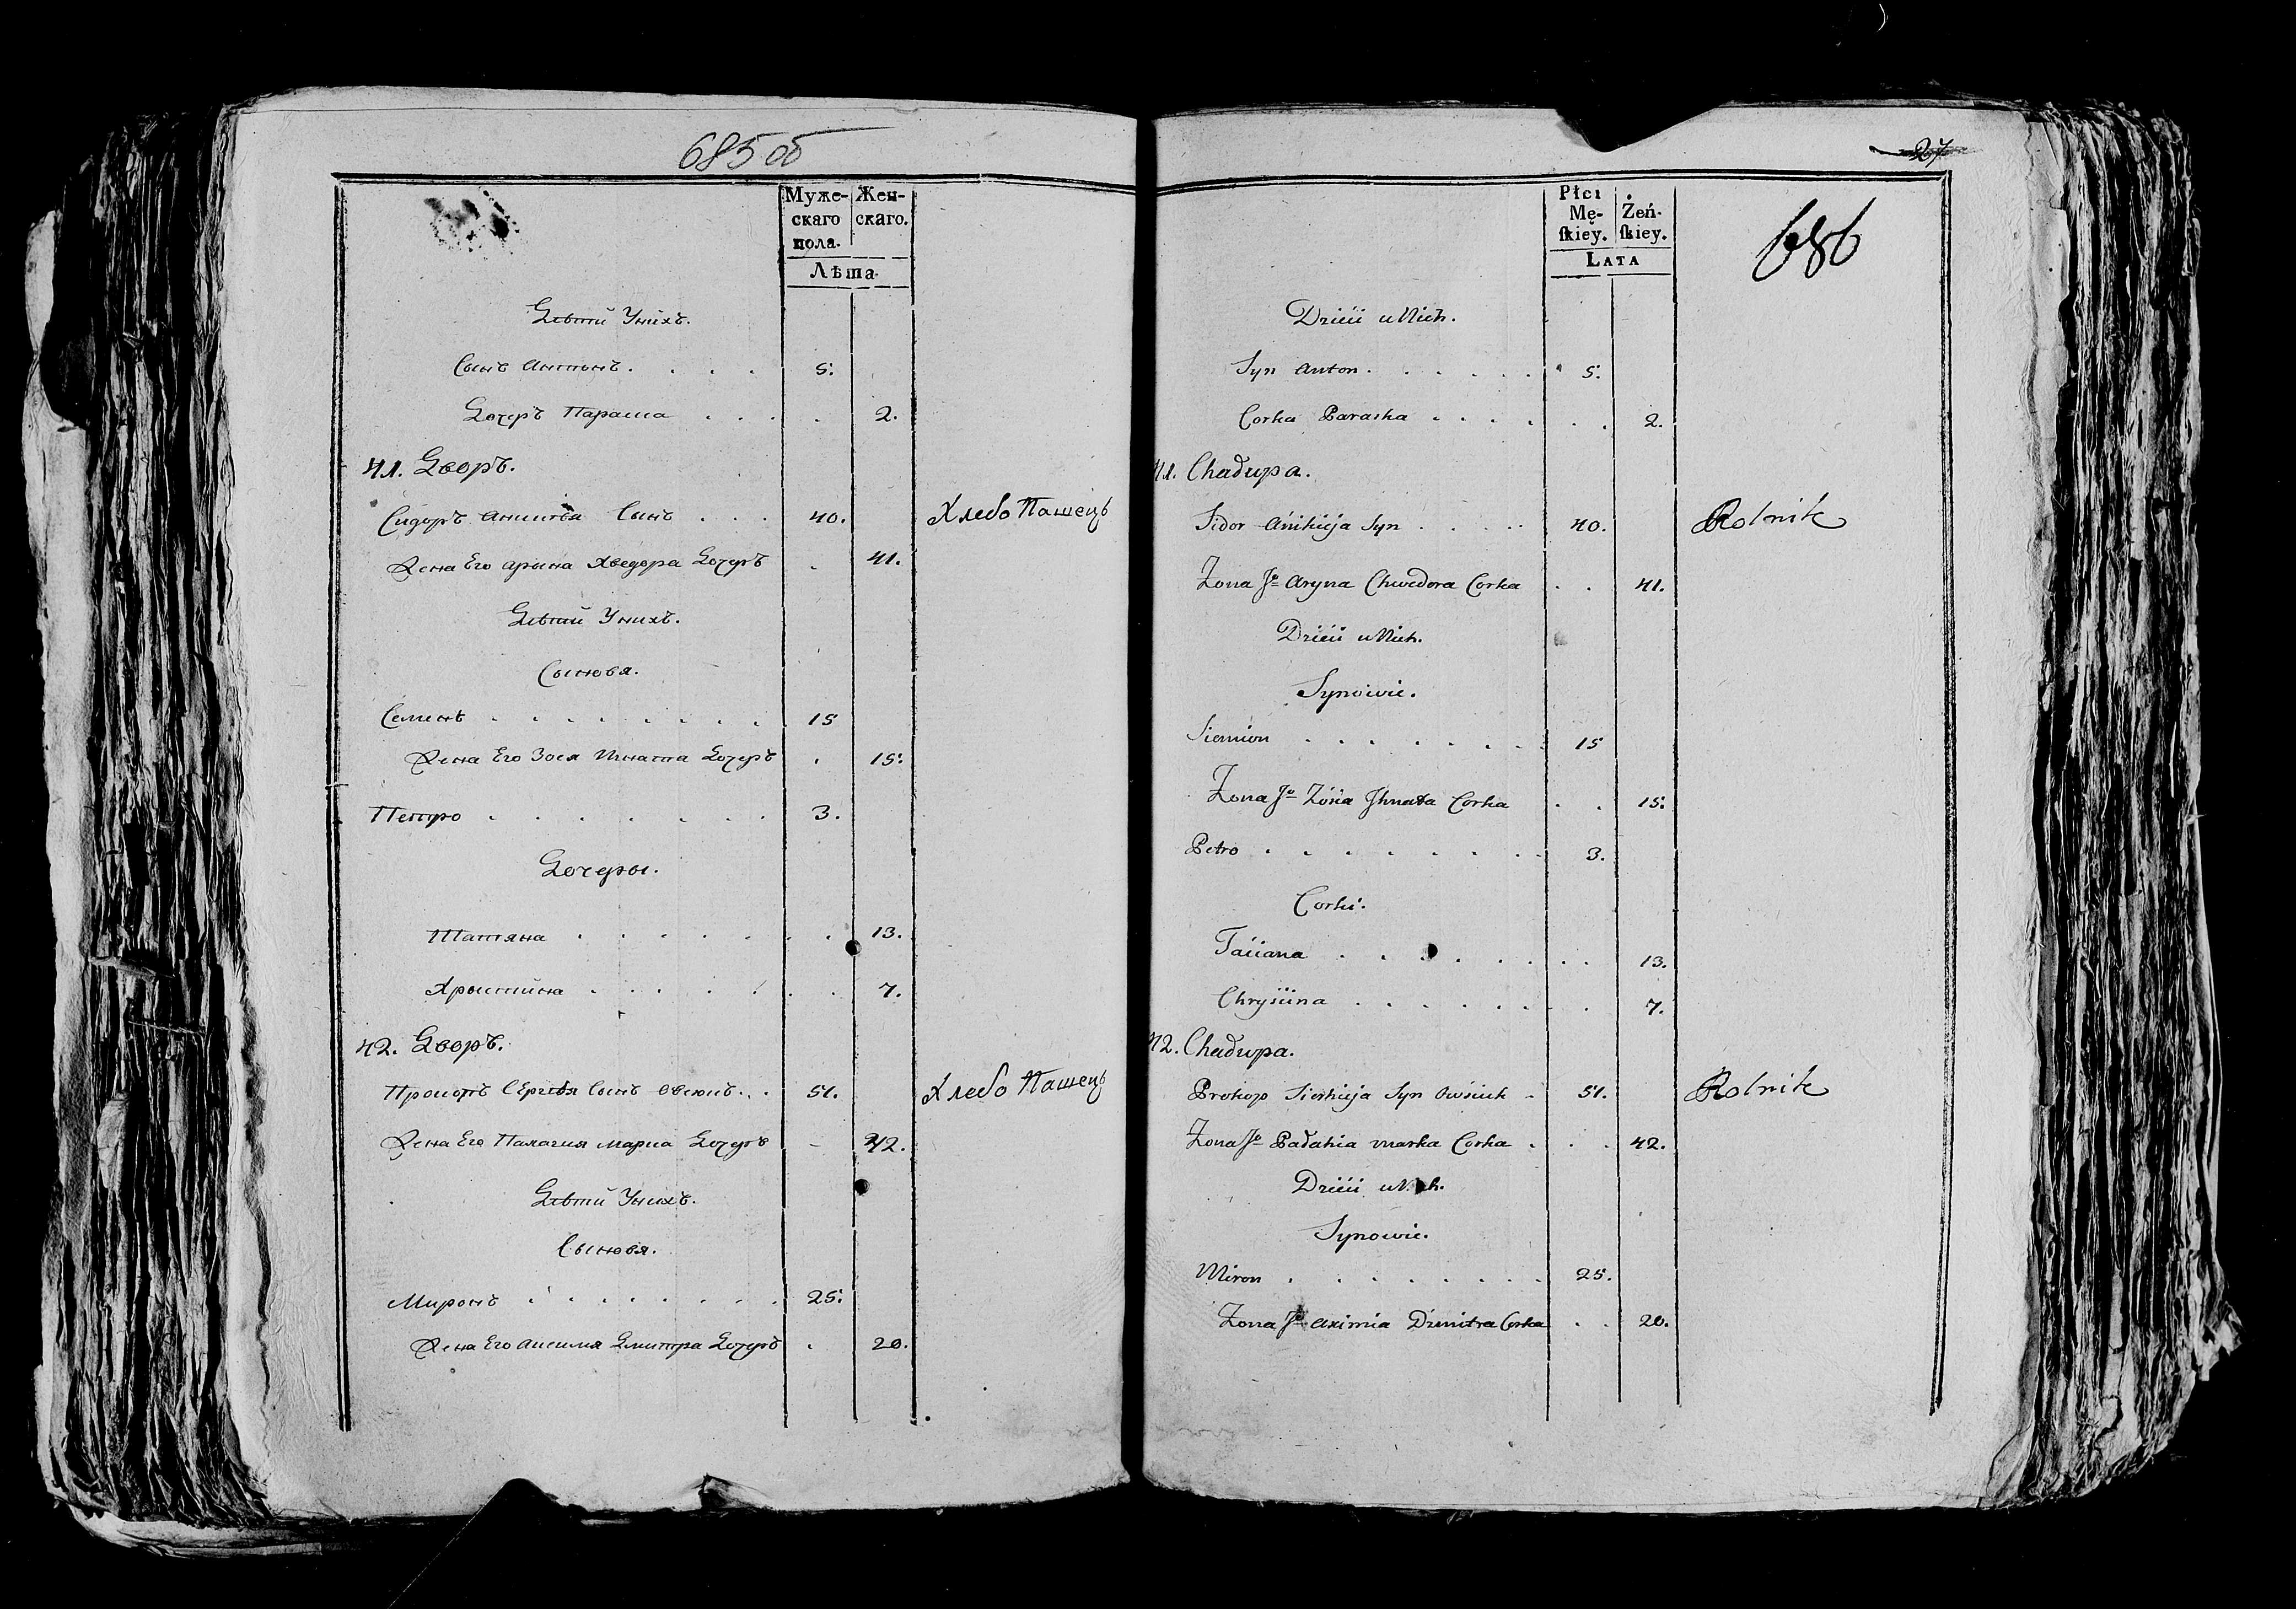 685 об
Муже- Жен-
скаго скаго.
пола.
Лѣта.
Дѣти Унихъ.
Сынъ Антонъ. 5.
Дочеръ Параска 2.
41. Дворъ.
Сидоръ Аникѣя Сынъ 40. Хлебо Пашецъ
Жена Его Арына Хведора Дочеръ 41.
Дѣти Унихъ.
Сыновя.
Семенъ 15
Жена Его Зося Игната Дочеръ 15.
Петро 3.
Дочеры.
Татяна 13.
Хрыстина 7.
42. Дворъ.
Прокопъ Сѐргѣя Сынъ Овсюкъ 51. Хлебо Пашецъ
Жена Его Палагия Марка Дочеръ 42.
Дѣти Унихъ.
Сыновя.
Миронъ 25.
Жена Его Аксимя Дмитра Дочеръ 20.
27
Płci
Mę- Żeń-
ſkiey. ſkiey.
LATA
686
Dzieci u Nich.
Syn Anton. 5.
Corka Paraska 2.
41. Chałupa.
Sidor Anikieja Syn 40. Rolnik
Zona Jº Aryna Chwedora Corka 41.
Dzieci u Nich.
Synowie.
Siemion 15
Zona Jº Zósia Jhnata Corka 15.
Petro 3.
Corki.
Taciana 13.
Chryścina 7.
42. Chałupa.
Prokop Sierhieja Syn Owsiuk 51. Rolnik
Zona Jº Pałahia Marka Corka 42.
Dzieci u Nich.
Synowie.
Miron 25.
Zona Jº Aximia Dzmitra Corka 20.